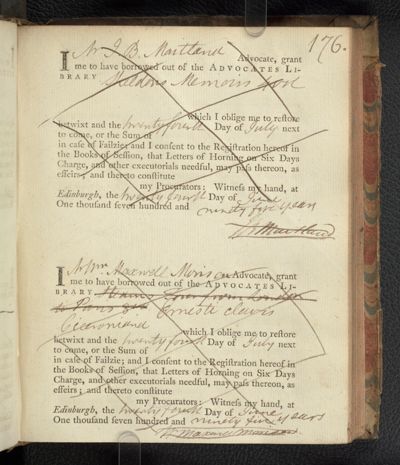 176.
I Mr J. B. Maitland Advocate, grant
me to have borrowed out of the ADVOCATES LI-
BRARY Memoirs
which I oblige me to restore
betwixt and the twenty fourth Day of July next
to come, or the Sum of
in case of Failzie; and I consent to the Registration hereof in
the Books of Session, that Letters of Horning on Six Days
Charge, and other executorials needful, may pass thereon, as
effeirs; and thereto constitute
my Procurators: Witness my hand, at
Edinburgh, the twenty fourth Day of June
One thousand seven hundred and ninety five years
Maitland
I Mr Wm. Maxwell Morison Advocate, grant
me to have borrowed out of the ADVOCATES LI-
BRARY Tour from London
to Paris Ernesti clavis
Ciceroniana
which I oblige me to restore
betwixt and the twenty fourth Day of July next
to come, or the Sum of
in case of Failzie; and I consent to the Registration hereof in
the Books of Session, that Letters of Horning on Six Days
Charge, and other executorials needful, may pass thereon, as
effeirs; and thereto constitute
my Procurators: Witness my hand, at
Edinburgh, the twenty fourth Day of June
One thousand seven hundred and ninety five years
Maxwell Morison